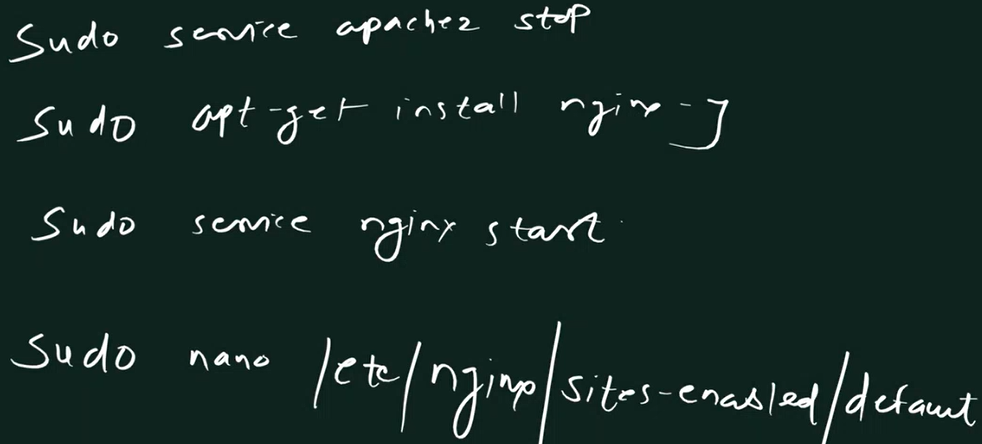 Sudo service apache2 stop
Sudo apt-get install nginx -y
Sudo service nginx start
Sudo nano /etc/nginx/sites-enabled/default